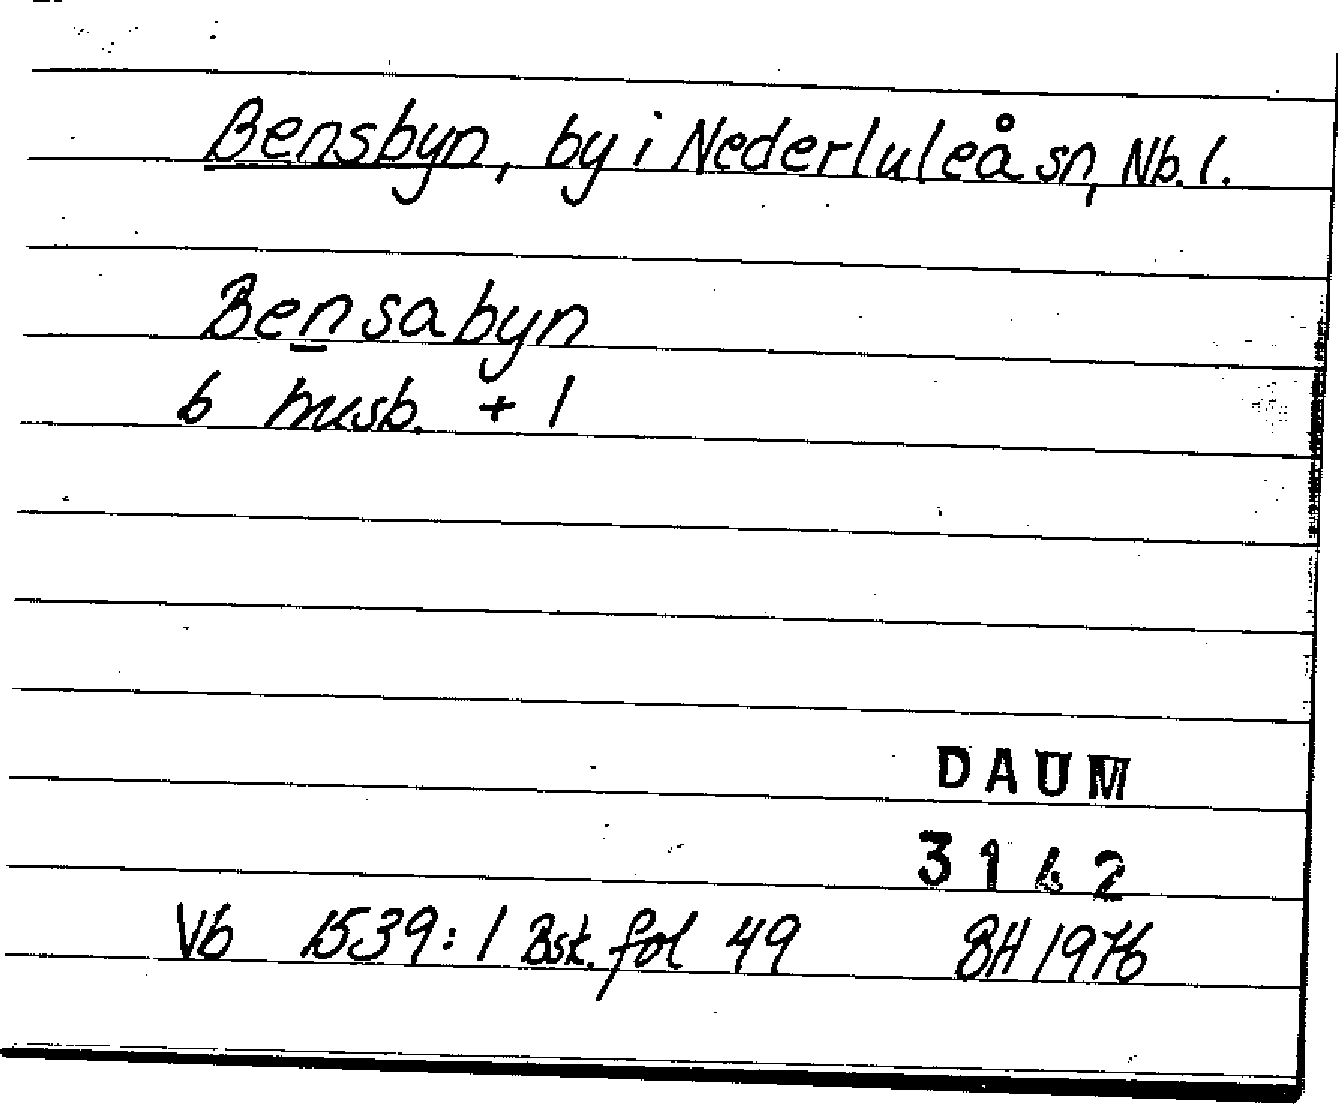 Bensbyn, by i Nederluleå sn, Nb. l.
Bensabyn
6 husb. + 1
DAUM
3142
Vb 1539:1 Bsk. fol 49 BH 1976